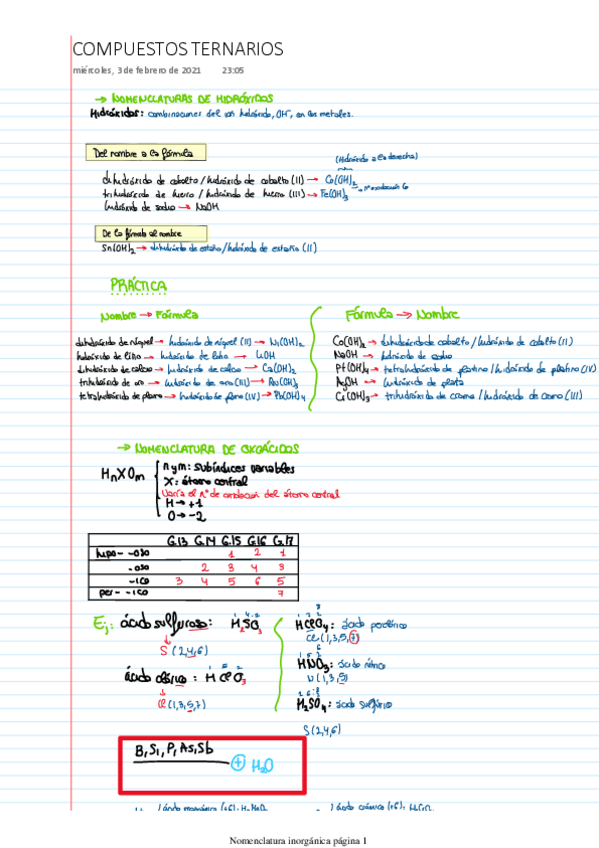 COMPUESTOS TERNARIOS
miércoles, 3 de febrero de 2021 23:05
→ NOMENCLATURAS DE HIDRÓXIDOS
Hidróxidos: combinaciones del ion hidróxido, OH⁻, con los metales.
Del nombre a la fórmula
(Hidróxido a la derecha)
dihidróxido de cobalto / hidróxido de cobalto (II) → Co(OH)₂
→ nº oxidación Co
trihidróxido de hierro / hidróxido de hierro (III) → Fe(OH)₃
hidróxido de sodio → NaOH
De la fórmula al nombre
Sn(OH)₂ → dihidróxido de estaño / hidróxido de estaño (II)
PRÁCTICA
Nombre → Fórmula
dihidróxido de níquel → hidróxido de níquel (II) → Ni(OH)₂
hidróxido de litio → hidróxido de litio → LiOH
dihidróxido de calcio → hidróxido de calcio → Ca(OH)₂
trihidróxido de oro → hidróxido de oro (III) → Au(OH)₃
tetrahidróxido de plomo → hidróxido de plomo (IV) → Pb(OH)₄
Fórmula → Nombre
Co(OH)₂ → dihidróxido de cobalto / hidróxido de cobalto (II)
NaOH → hidróxido de sodio
Pt(OH)₄ → tetrahidróxido de platino / hidróxido de platino (IV)
AgOH → hidróxido de plata
Cr(OH)₃ → trihidróxido de cromo / hidróxido de cromo (III)
→ NOMENCLATURA DE OXOÁCIDOS
HₙXOₘ
n y m: subíndices variables
X: átomo central
Varía el nº de oxidación del átomo central
H → +1
O → -2
G.13 G.14 G.15 G.16 G.17
hipo- -oso 1 2 1
-oso 2 3 4 3
-ico 3 4 5 6 5
per- -ico 7
Ej: ácido sulfuroso: H₂SO₃
S (2,4,6)
ácido clórico: HClO₃
Cl (1,3,5,7)
HClO₄: ácido perclórico
Cl (1,3,5,7)
HNO₃: ácido nítrico
N (1,3,5)
H₂SO₄: ácido sulfúrico
S (2,4,6)
B, Si, P, As, Sb
+ H₂O
Nomenclatura inorgánica página 1